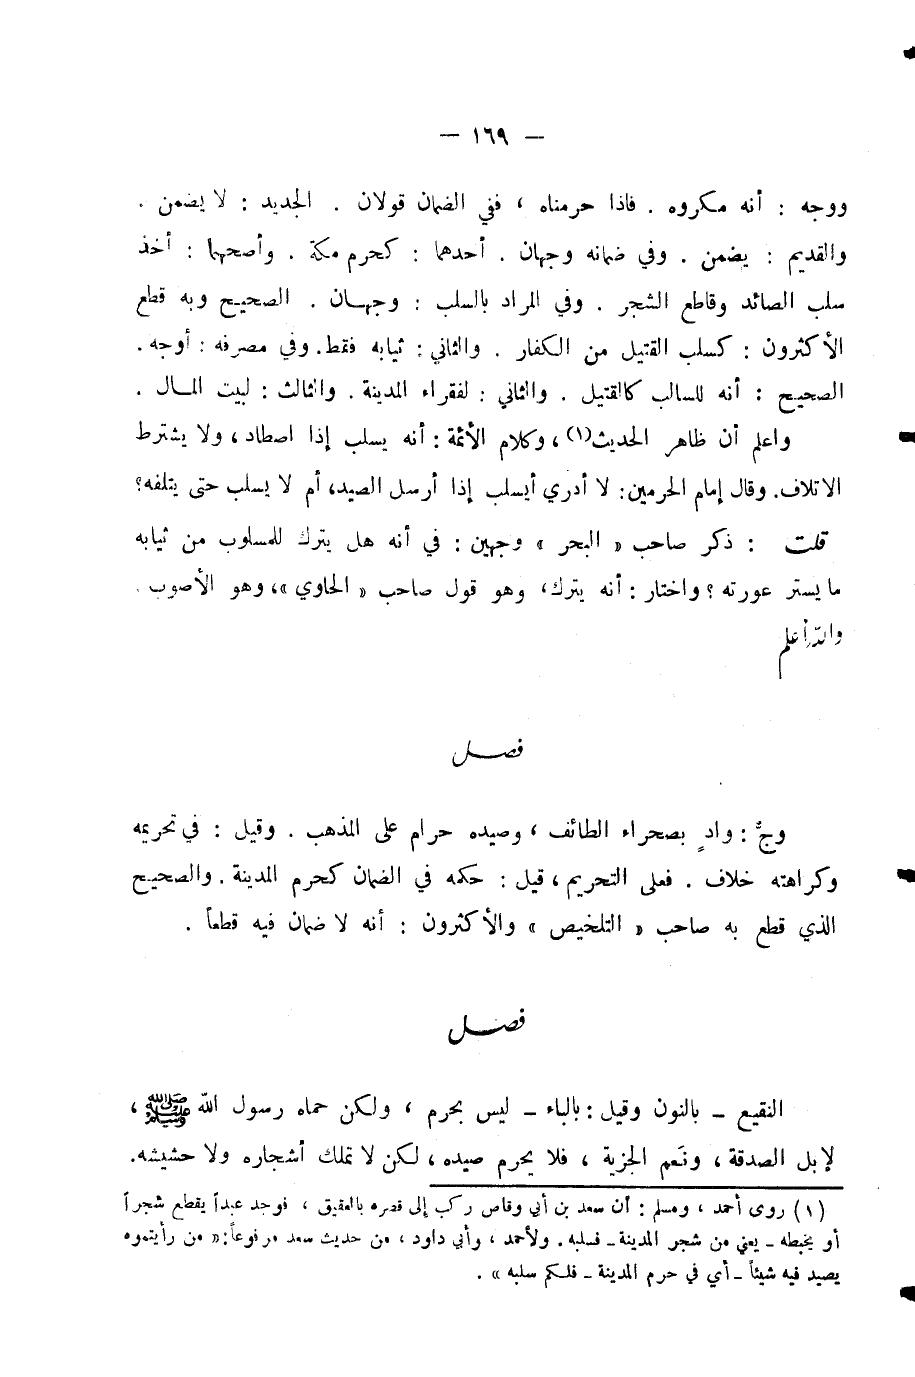 — ١٦٩ —
ووجه : أنه مكروه . فاذا حرمناه ، ففي الضمان قولان . الجديد : لا يضمن .
والقديم : يضمن . وفي ضمانه وجهان . أحدهما : كحرم مكة . وأصحهما : أخذ
سلب الصائد وقاطع الشجر . وفي المراد بالسلب : وجهـان . الصحيح وبه قطع
الأكثرون : كسلب القتيل من الكفار . والثاني : ثيابه فقط . وفي مصرفه : أوجه .
الصحيح : أنه للسالب كالقتيل . والثاني : لفقراء المدينة . والثالث : لبيت المـال .
واعلم أن ظاهر الحديث(١) ، وكلام الأئمة : أنه يسلب إذا اصطاد ، ولا يشترط
الاتلاف. وقال إمام الحرمين: لا أدري أيسلب إذا أرسل الصيد، أم لا يسلب حتى يتلفه؟
قلت : ذكر صاحب « البحر » وجهين : في أنه هل يترك للمسلوب من ثيابه
ما يستر عورته ؟ واختار : أنه يترك، وهو قول صاحب « الحاوي »، وهو الأصوب .
والله أعلم
فصـــل
وجٌّ : وادٍ بصحراء الطائف ، وصيده حرام على المذهب . وقيل : في تحريمه
وكراهته خلاف . فعلى التحريم ، قيل : حكمه في الضمان كحرم المدينة . والصحيح
الذي قطع به صاحب « التلخيص » والأكثرون : أنه لا ضمان فيه قطعاً .
فصـــل
النقيع – بالنون وقيل : بالباء – ليس بحرم ، ولكن حماه رسول الله ﷺ ،
لإبل الصدقة ، ونَعم الجزية ، فلا يحرم صيده ، لكن لا تملك أشجاره ولا حشيشه.
(١) روى أحمد ، ومسلم : أن سعد بن أبي وقاص ركب إلى قصره بالعقيق ، فوجد عبداً يقطع شجراً
أو يخبطه – يعني من شجر المدينة – فسلبه . ولأحمد ، وأبي داود ، من حديث سعد مرفوعاً : « من رأيتموه
يصيد فيه شيئاً – أي في حرم المدينة – فلكم سلبه » .